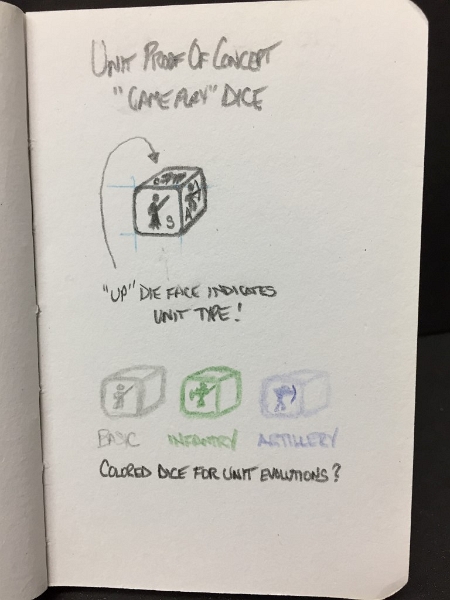 UNIT PROOF OF CONCEPT
"GAMEPLAY" DICE
S
A
"UP" DIE FACE INDICATES
UNIT TYPE!
BASIC INFANTRY ARTILLERY
COLORED DICE FOR UNIT EVOLUTIONS?